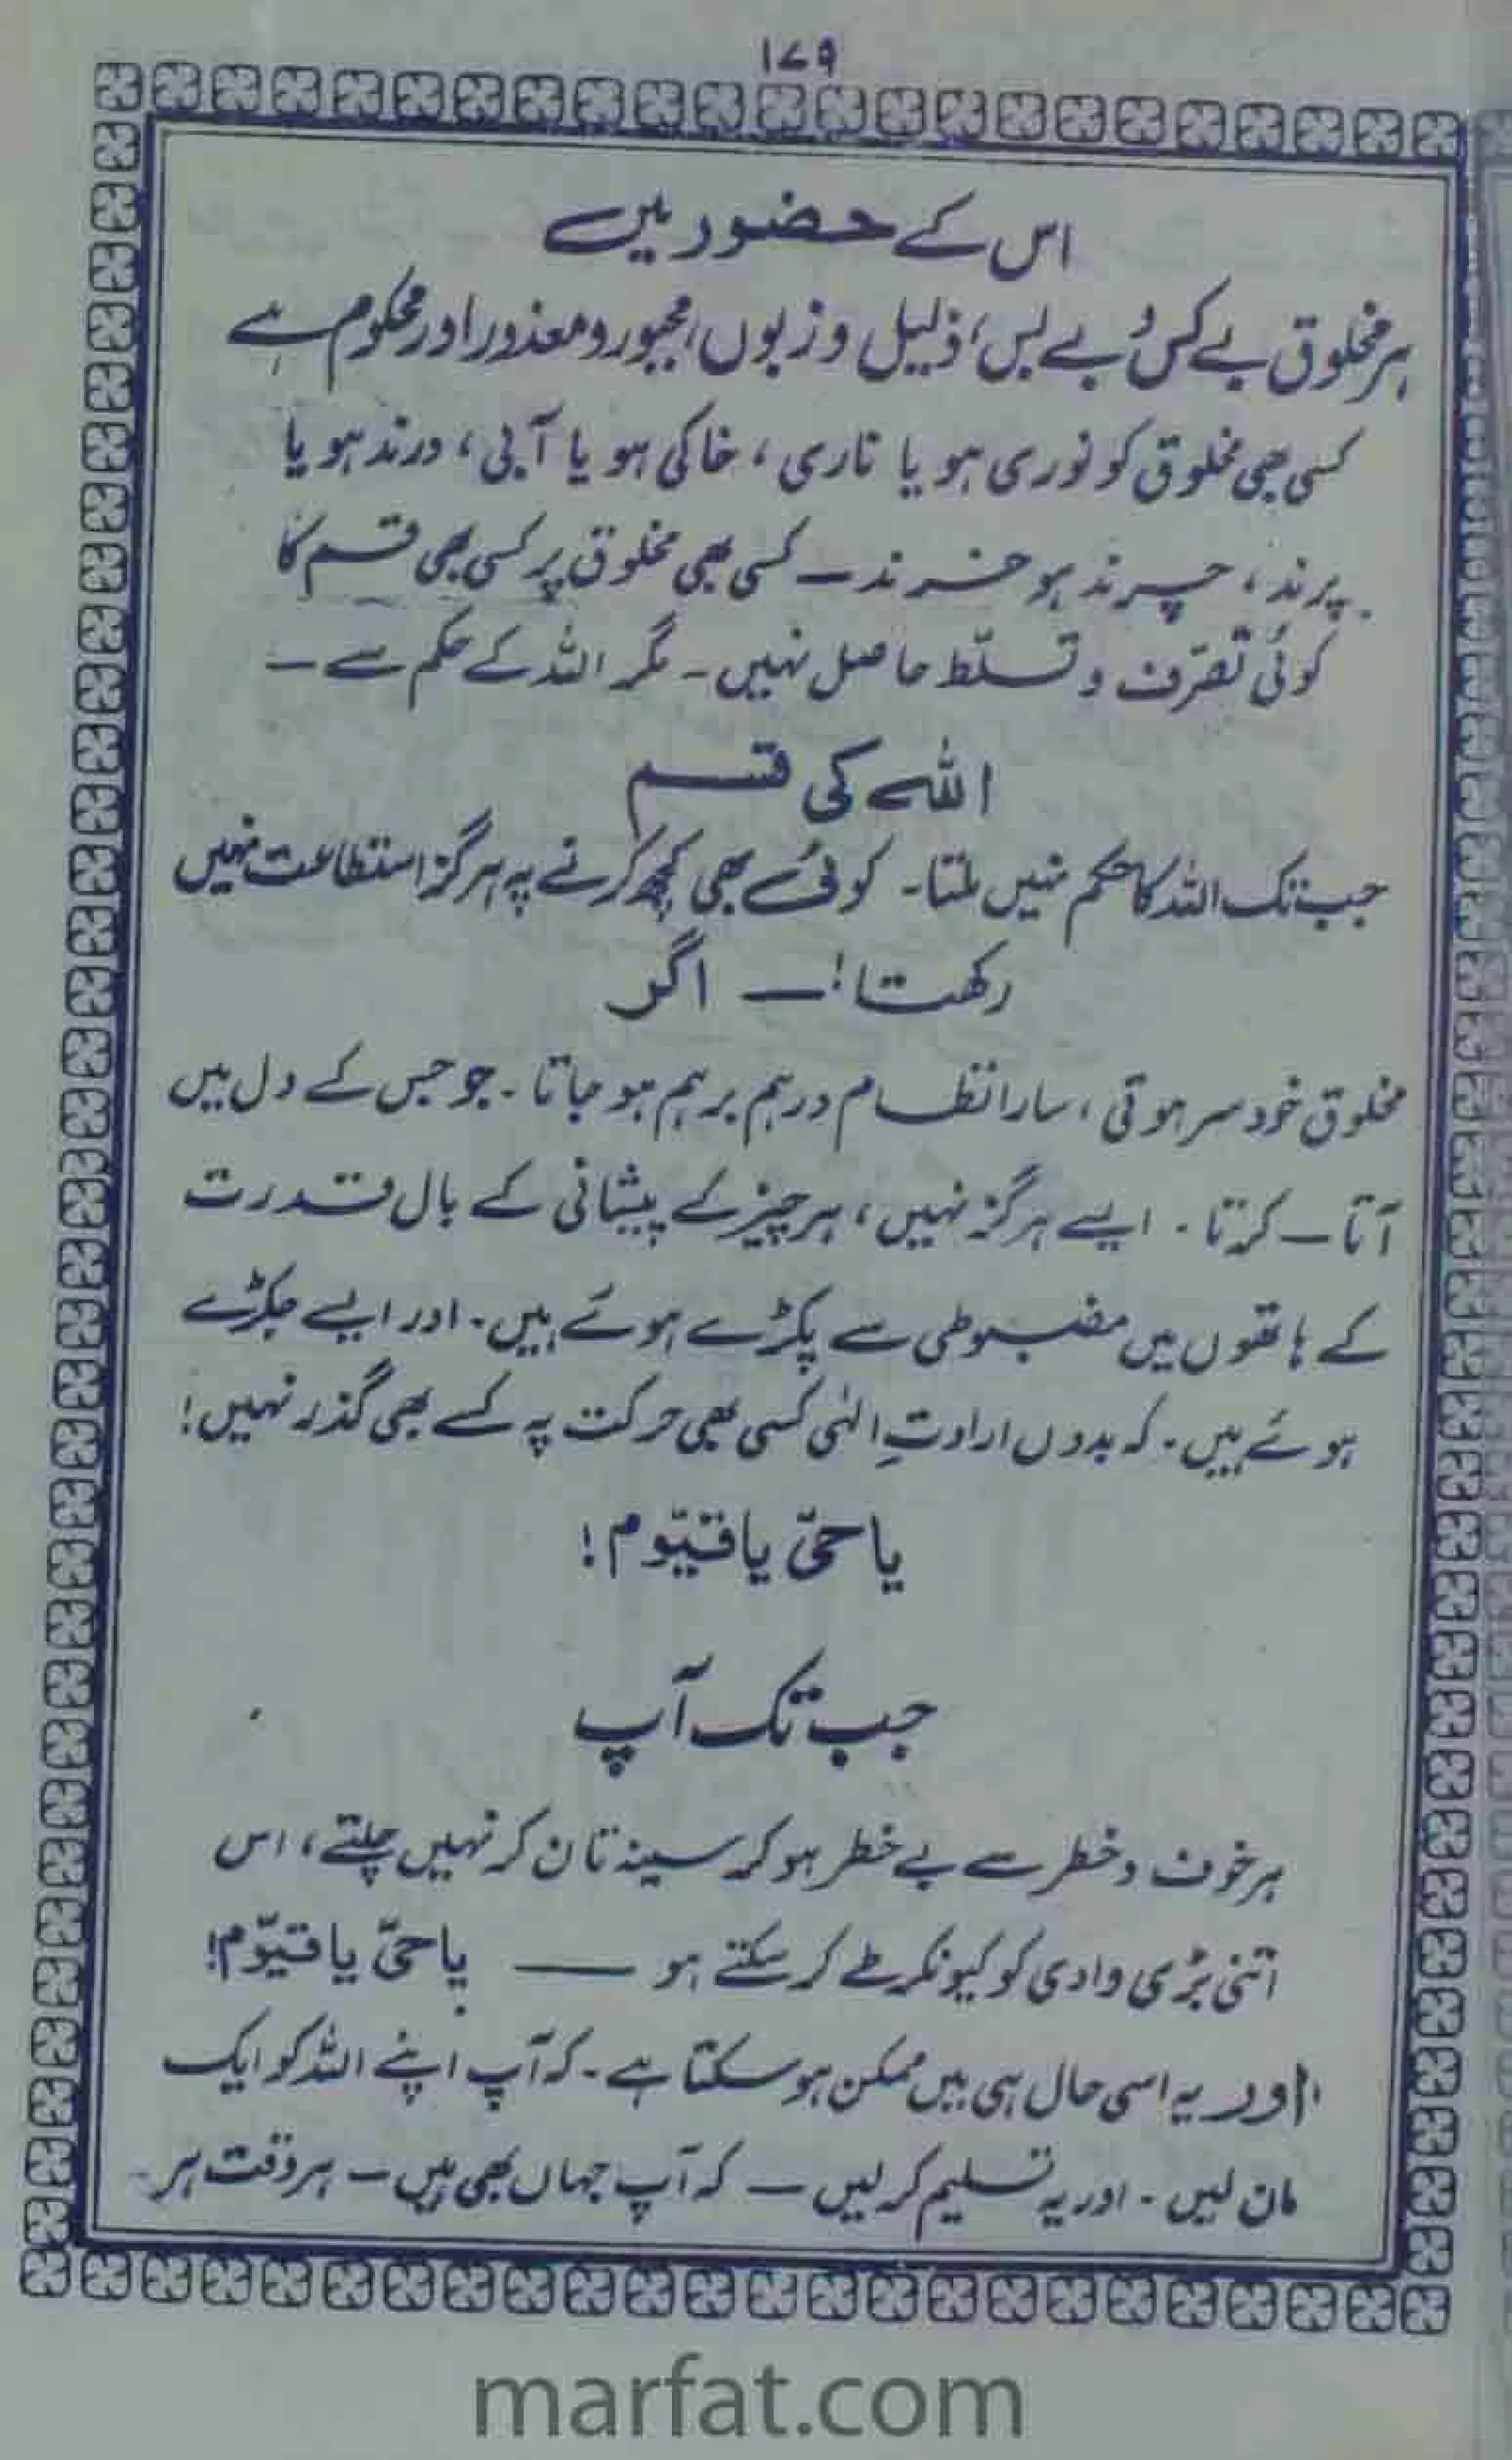 ۱۷۹
اس کے حضور میں
ہر مخلوق بے کس، بے بس، ذلیل و زبوں، مجبور و معذور اور محکوم ہے
کسی بھی مخلوق کو نوری ہو یا ناری ، خاکی ہو یا آبی ، درند ہو یا
پرند ، چرند ہو خزند ــ کسی بھی مخلوق پر کسی بھی قسم کا
کوئی تصرّف و تسلّط حاصل نہیں ۔ مگر اللہ کے حکم سے ــ
اللہ کی قسم
جب تک اللہ کا حکم نہیں ملتا ۔ کوئی بھی کچھ کرنے پہ ہرگز استطاعت نہیں
رکھتا ! ــ اگر
مخلوق خود سر ہوتی ، سارا نظام درہم برہم ہو جاتا ۔ جو جس کے دل میں
آتا ــ کرتا ۔ ایسے ہرگز نہیں ، ہر چیز کے پیشانی کے بال قدرت
کے ہاتھوں میں مضبوطی سے پکڑے ہوئے ہیں ۔ اور ایسے جکڑے
ہوئے ہیں ۔ کہ بدوں ارادتِ الٰہی کسی بھی حرکت پہ کسے بھی گذر نہیں !
یا حیّ یا قیّوم !
جب تک آپ
ہر خوف و خطر سے بے خطر ہو کر سینہ تان کر نہیں چلتے ، اس
اتنی بڑی وادی کو کیونکر طے کر سکتے ہو ــــ یا حیّ یا قیّوم !
اور یہ اسی حال ہی میں ممکن ہو سکتا ہے ۔ کہ آپ اپنے اللہ کو ایک
مان لیں ۔ اور یہ تسلیم کر لیں ــ کہ آپ جہاں بھی ہیں ــ ہر وقت ہر
marfat.com